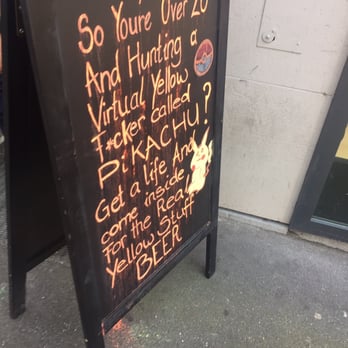 So Youre Over 20
And Hunting a
Virtual Yellow
F*cker called
PiKACHU?
Get a life And
come inside
for the Real
Yellow Stuff
BEER